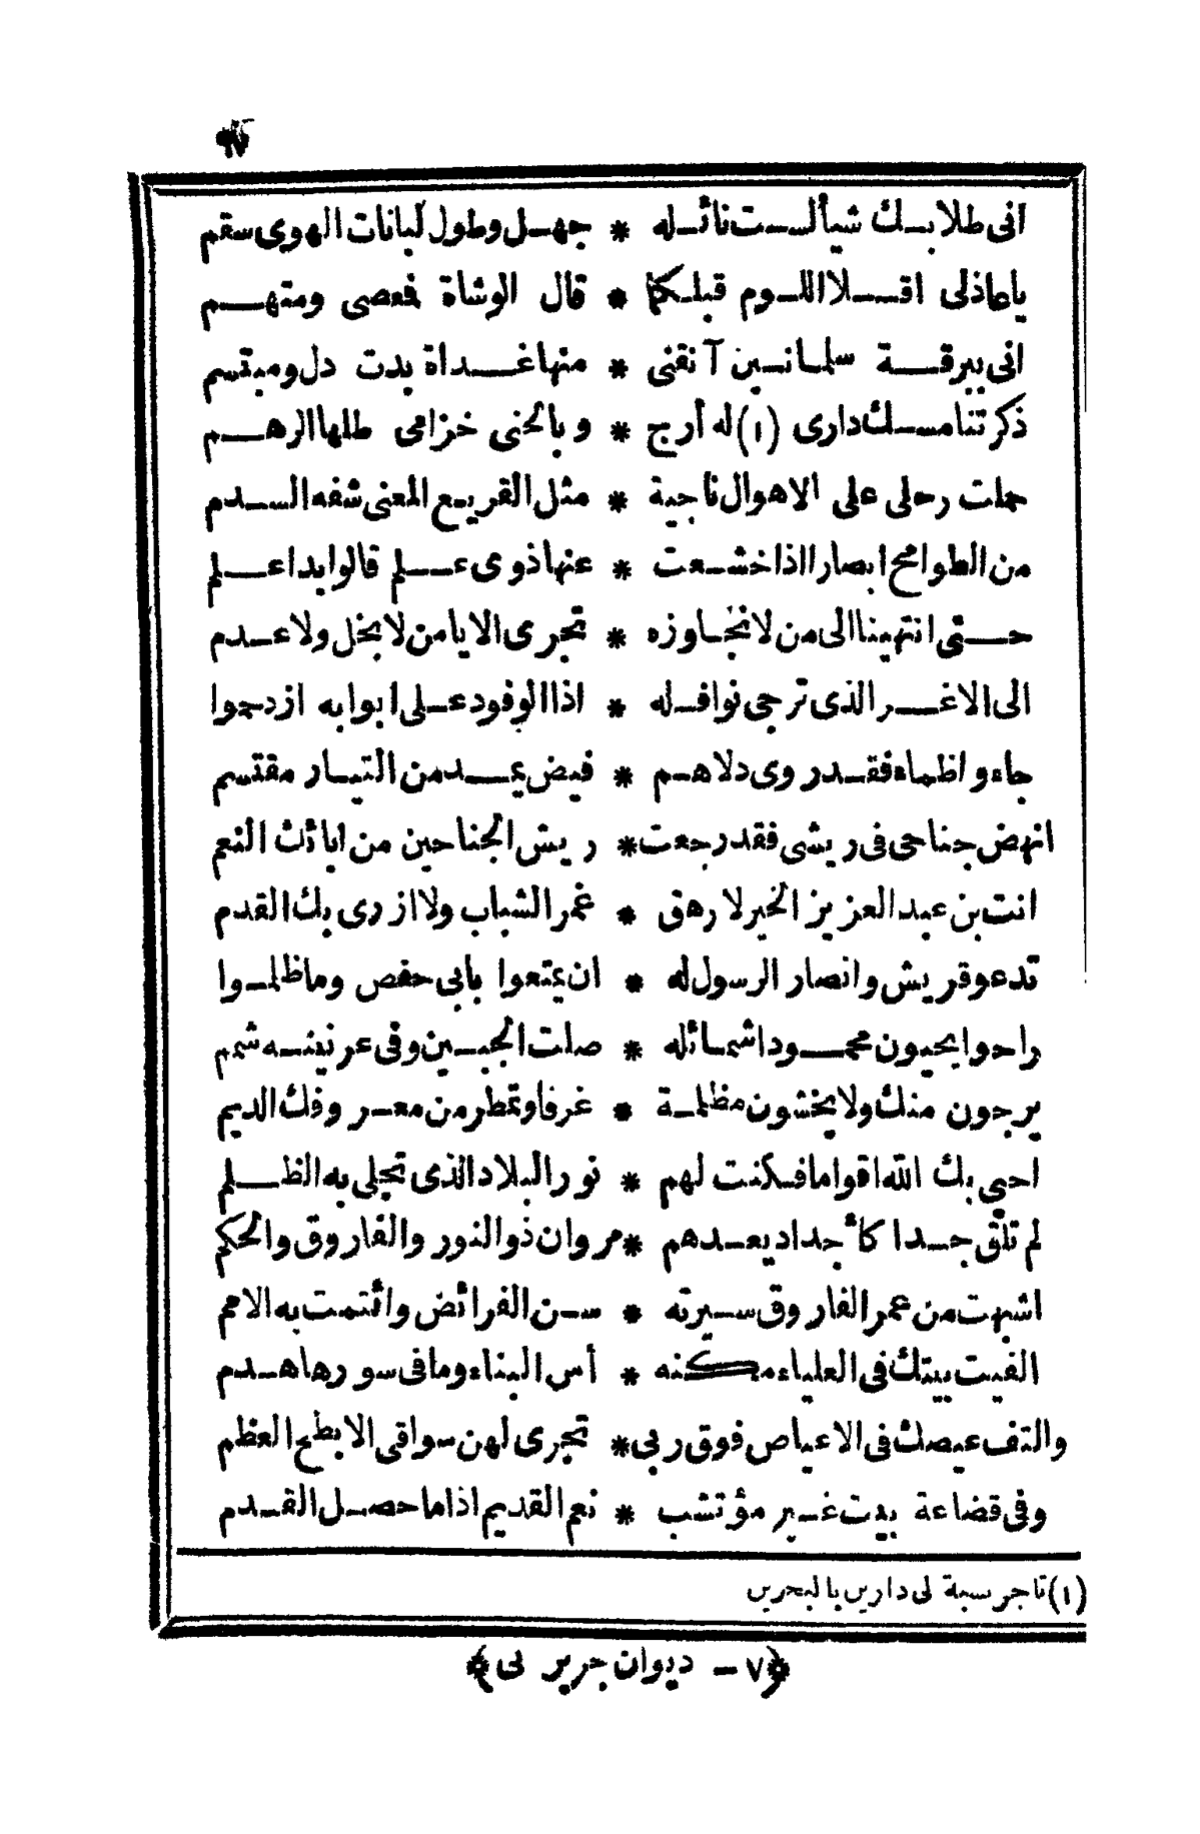 ٩٧
انى طلابك شيأ لست نائله * جهل وطول لبانات الهوى سقم
يا عاذلى اقلا اللوم قبلكما * قال الوشاة فعصى ومتهم
انى ببرقة سلمانين آنقنى * منها غداة بدت دل ومبتسم
ذكرتنا مسك دارى (١) له أرج * وبالحنى خزامى طلها الرهم
حملت رحلى على الاهوال ناجية * مثل القريع المعنى شفه السدم
من الطوامح ابصارا اذا خشعت * عنها ذوى علم قالوا بدا علم
حتى انتهينا الى من لا نجاوزه * تجرى الايامن لا بخل ولا عدم
الى الاغر الذى ترجى نوافله * اذا الوفود على ابوابه ازدحموا
جاءوا ظماء فقد روى دلاءهم * فيض يمد من التيار مقتسم
انهض جناحى فى ريشى فقد رجعت * ريش الجناحين من ابائك النعم
انت بن عبد العزيز الخير لا رهق * غمر الشباب ولا ازرى بك القدم
تدعو قريش وانصار الرسول له * ان يمتعوا بابى حفص وما ظلموا
راحوا يحيون محمودا شمائله * صلت الجبين وفى عرنينه شمم
يرجون منك ولا يخشون مظلمة * عرفا وتمطر من معروفك الديم
احيى بك الله اقواما فكنت لهم * نور البلاد الذى تجلى به الظلم
لم تلق جدا كأجداد يعدهم * مروان ذو النور والفاروق والحكم
اشبهت من عمر الفاروق سيرته * سن الفرائض وائتمت به الامم
الفيت بيتك فى العلياء مكنه * أس البناء وما فى سورها هدم
والتف عيصك فى الاعياص فوق ربى * تجرى لهن سواقى الابطح العظم
وفى قضاعة بيت غير مؤتشب * نعم القديم اذا ما حصل القدم
(١) تاجر نسبة لى دارين بالبحرين
﴿٧ – ديوان جرير نى﴾